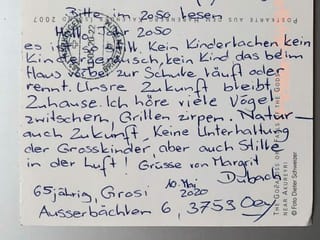 Bitte im 2050 lesen
Hallo Jahr 2050
es ist still. Kein Kinderlachen kein
Kindergeräusch, kein Kind das beim
Haus vorbei zur Schule läuft oder
rennt. Unsre Zukunft bleibt
Zuhause. Ich höre viele Vögel
zwitschern, Grillen zirpen. Natur-
auch Zukunft. Keine Unterhaltung
der Grosskinder, aber auch Stille
in der Luft! Grüsse von Margrit
Dubach
65jährig, Grosi 10. Mai
2020
Ausserbächlen 6, 3753 Oey
THE GODAFOSS OR FALLS OF THE GODS
NEAR AKUREYRI
© Foto Dieter Schweizer